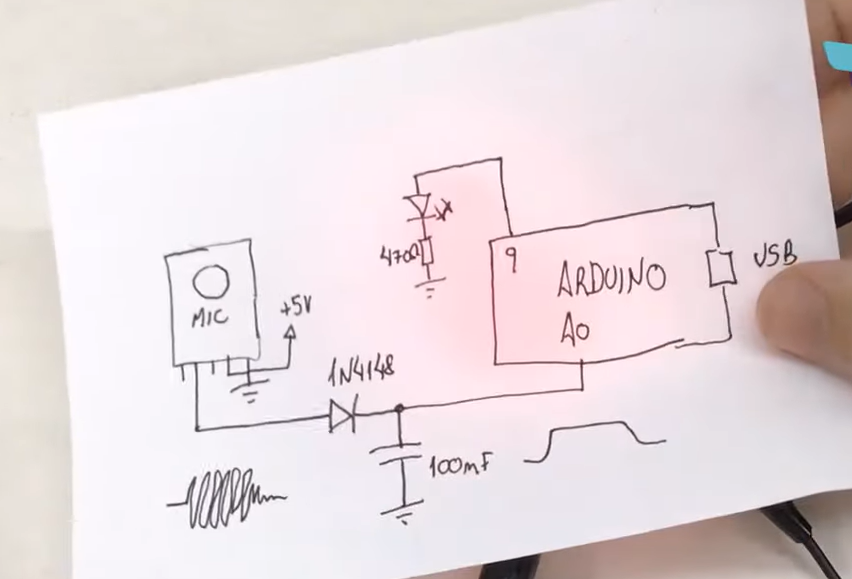 470Ω
9
ARDUINO
USB
A0
MIC
+5V
1N4148
100mF